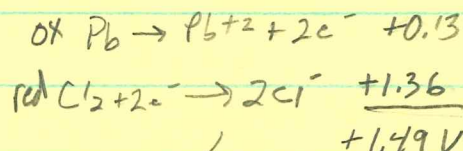 ox Pb → Pb+2 + 2e- +0.13
red Cl2 + 2e- → 2Cl- +1.36
+1.49 V